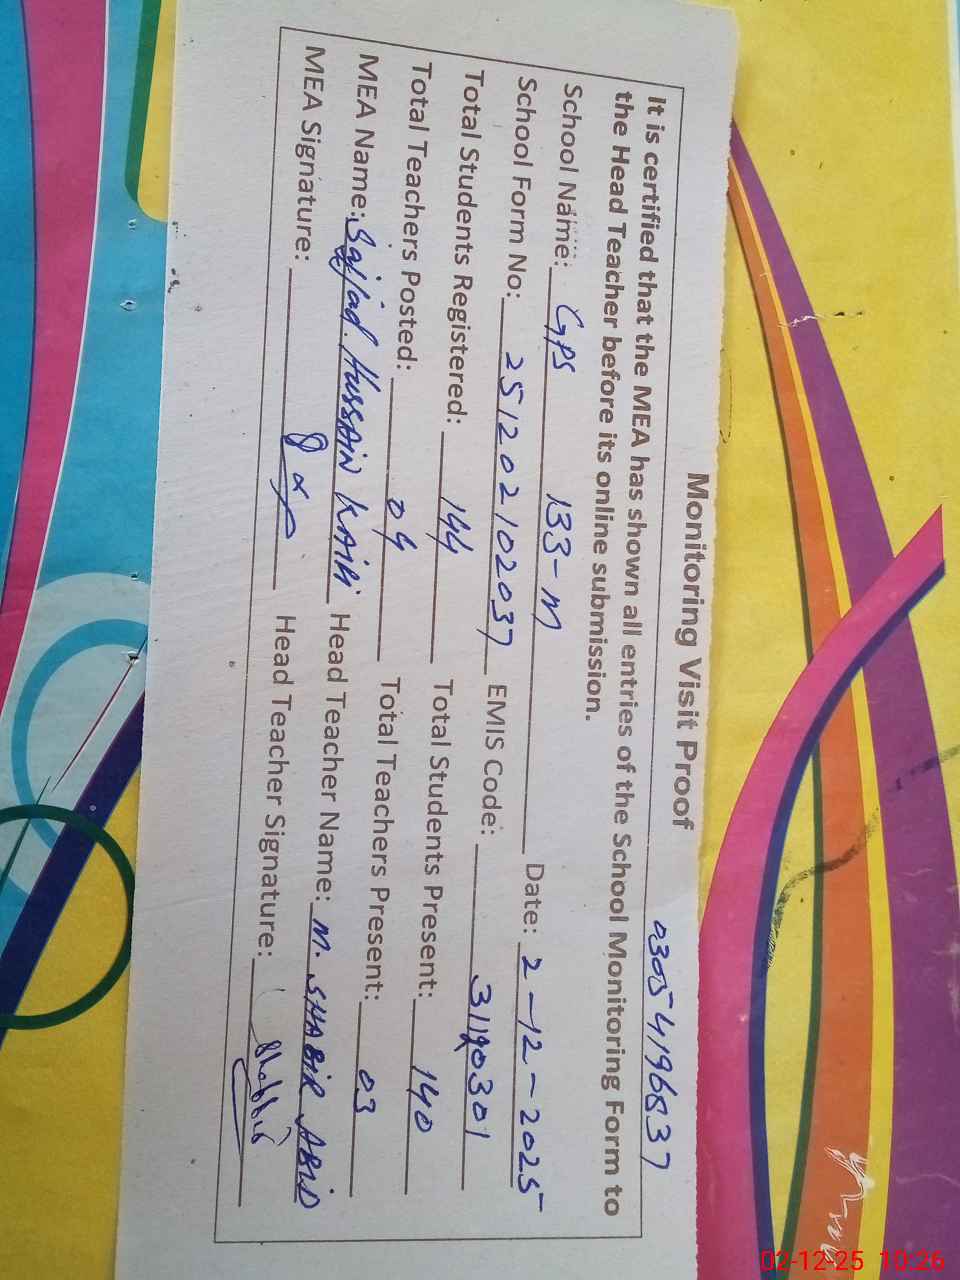 Monitoring Visit Proof 0305 4196837
It is certified that the MEA has shown all entries of the School Monitoring Form to
the Head Teacher before its online submission.
School Name: GPS 133-M Date: 2-12-2025
School Form No: 251202102037 EMIS Code: 31190301
Total Students Registered: 144 Total Students Present: 140
Total Teachers Posted: 04 Total Teachers Present: 03
MEA Name: Sajjad Hussain KAifi Head Teacher Name: M. SHABIR ABID
MEA Signature: Head Teacher Signature: Shabbir
02-12-25 10:26